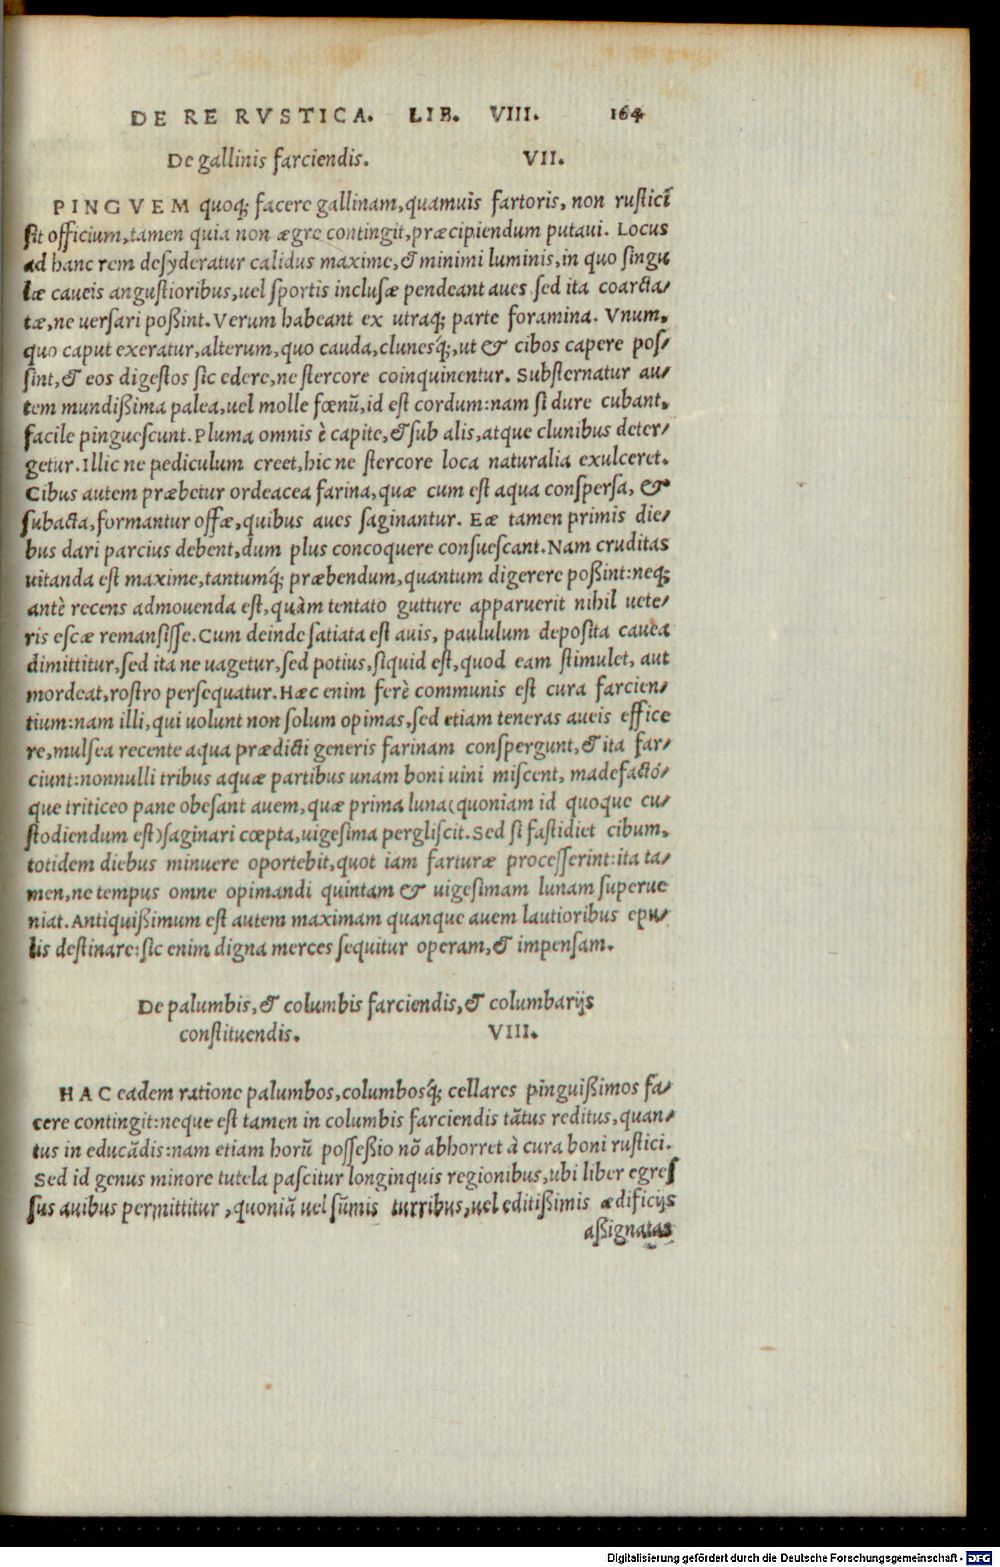 DE RE RVSTICA. LIB. VIII. 164
De gallinis farciendis. VII.
PINGVEM quoq; facere gallinam, quamuis fartoris, non rusticĩ
sit officium, tamen quia non ægre contingit, præcipiendum putaui. Locus
ad hanc rem desyderatur calidus maxime, & minimi luminis, in quo singu
læ caueis angustioribus, uel sportis inclusæ pendeant aues sed ita coarcta/
tæ, ne uersari poßint. Verum habeant ex utraq; parte foramina. Vnum,
quo caput exeratur, alterum, quo cauda, clunesq́;, ut & cibos capere pos/
sint, & eos digestos sic edere, ne stercore coinquinentur. Substernatur au/
tem mundißima palea, uel molle fœnũ, id est cordum: nam si dure cubant,
facile pinguescunt. Pluma omnis è capite, & sub alis, atque clunibus deter/
getur. Illic ne pediculum creet, hic ne stercore loca naturalia exulceret.
Cibus autem præbetur ordeacea farina, quæ cum est aqua conspersa, &
subacta, formantur offæ, quibus aues saginantur. Eæ tamen primis die/
bus dari parcius debent, dum plus concoquere consuescant. Nam cruditas
uitanda est maxime, tantumq́; præbendum, quantum digerere poßint: neq;
antè recens admouenda est, quàm tentato gutture apparuerit nihil uete/
ris escæ remansisse. Cum deinde satiata est auis, paululum deposita cauea
dimittitur, sed ita ne uagetur, sed potius, siquid est, quod eam stimulet, aut
mordeat, rostro persequatur. Hæc enim ferè communis est cura farcien/
tium: nam illi, qui uolunt non solum opimas, sed etiam teneras aueis effice
re, mulsea recente aqua prædicti generis farinam conspergunt, & ita far/
ciunt: nonnulli tribus aquæ partibus unam boni uini miscent, madefactó/
que triticeo pane obesant auem, quæ prima luna (quoniam id quoque cu/
stodiendum est) saginari cœpta, uigesima pergliscit. Sed si fastidiet cibum,
totidem diebus minuere oportebit, quot iam farturæ processerint: ita ta/
men, ne tempus omne opimandi quintam & uigesimam lunam superue
niat. Antiquißimum est autem maximam quanque auem lautioribus epu/
lis destinare: sic enim digna merces sequitur operam, & impensam.
De palumbis, & columbis farciendis, & columbarijs
constituendis. VIII.
HAC eadem ratione palumbos, columbosq́; cellares pinguißimos fa/
cere contingit: neque est tamen in columbis farciendis tãtus reditus, quan/
tus in educãdis: nam etiam horũ possessio nõ abhorret à cura boni rustici.
Sed id genus minore tutela pascitur longinquis regionibus, ubi liber egres
sus auibus permittitur, quoniã uel sũmis turribus, uel editißimis ædificijs
aßignatas
Digitalisierung gefördert durch die Deutsche Forschungsgemeinschaft - DFG